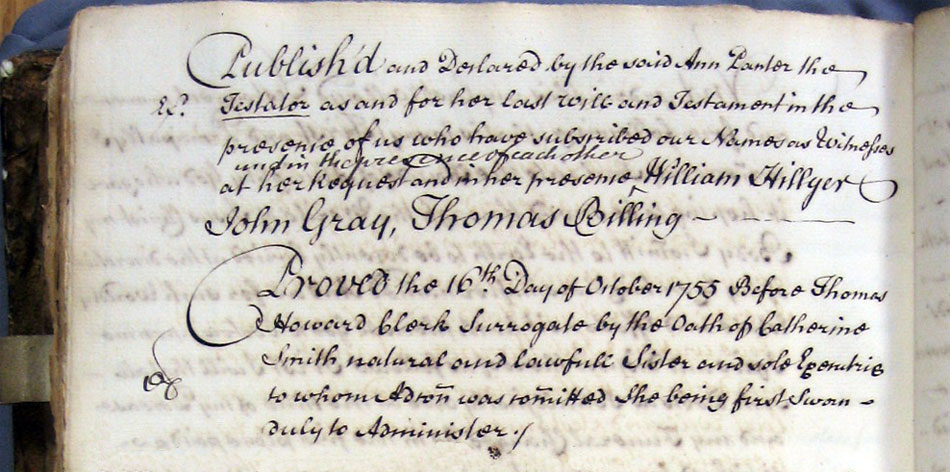 Publish'd and Declared by the said Ann Panter the
Testator as and for her last Will and Testament in the
presence of us who have subscribed our Names as Witnesses
and in the presence of each other
at her Request and in her presence William Hillyer
John Gray, Thomas Billing
Proved the 16th Day of October 1755 Before Thomas
Howard Clerk Surrogate by the Oath of Catherine
Smith natural and lawfull Sister and sole Executrix
to whom Adron was comitted She being first Sworn
duly to Administer ./